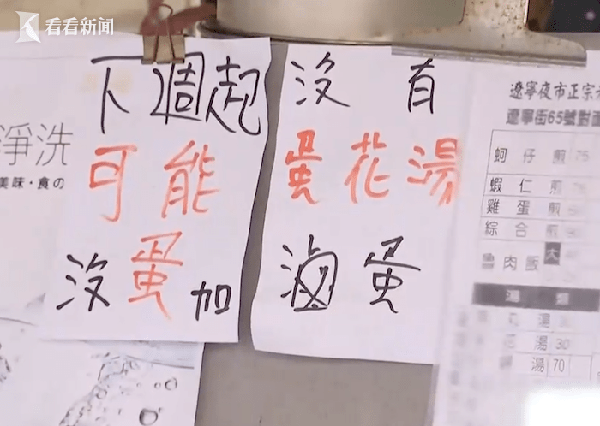 看看新闻
下週起
可能
沒蛋加
沒有
蛋花湯
滷蛋
淨洗
美味・食の
遼寧夜市正宗
遼寧街65號對面
蚵仔煎 75
蝦仁煎
雞蛋煎
綜合煎
魯肉飯 大
湯類
湯
湯 30
湯 70